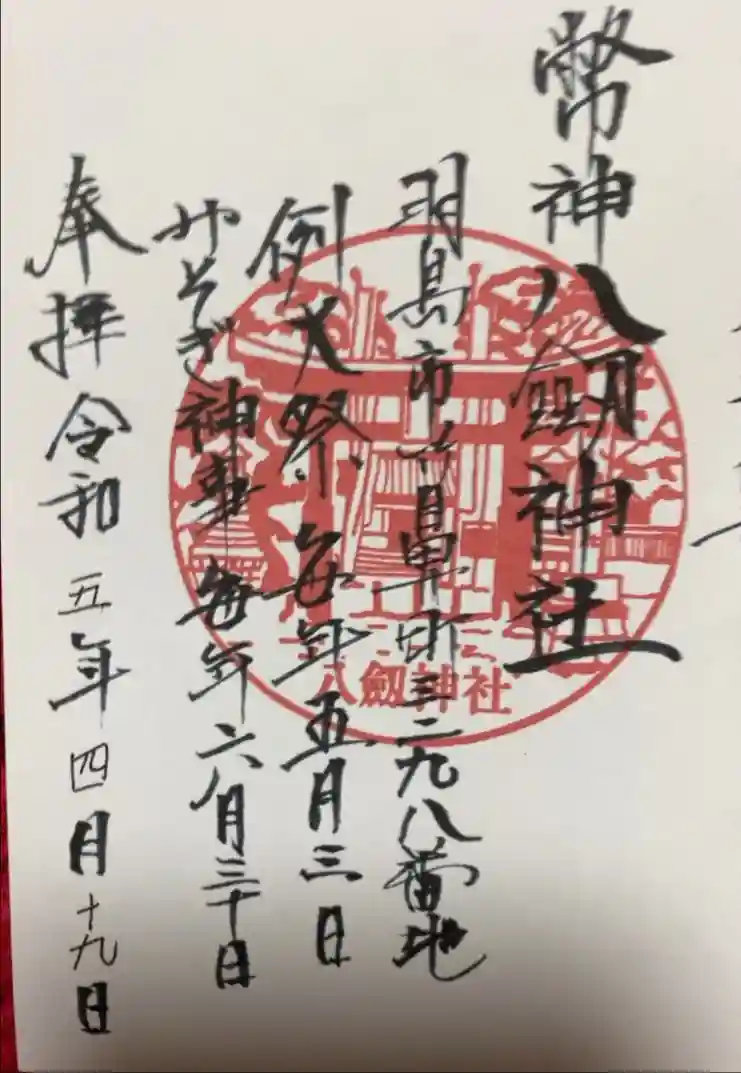 幣神八劔神社
羽島市竹鼻町三二九八番地
例大祭毎年五月三日
みそぎ神事毎年六月三十日
奉拝令和五年四月十九日
八劔神社